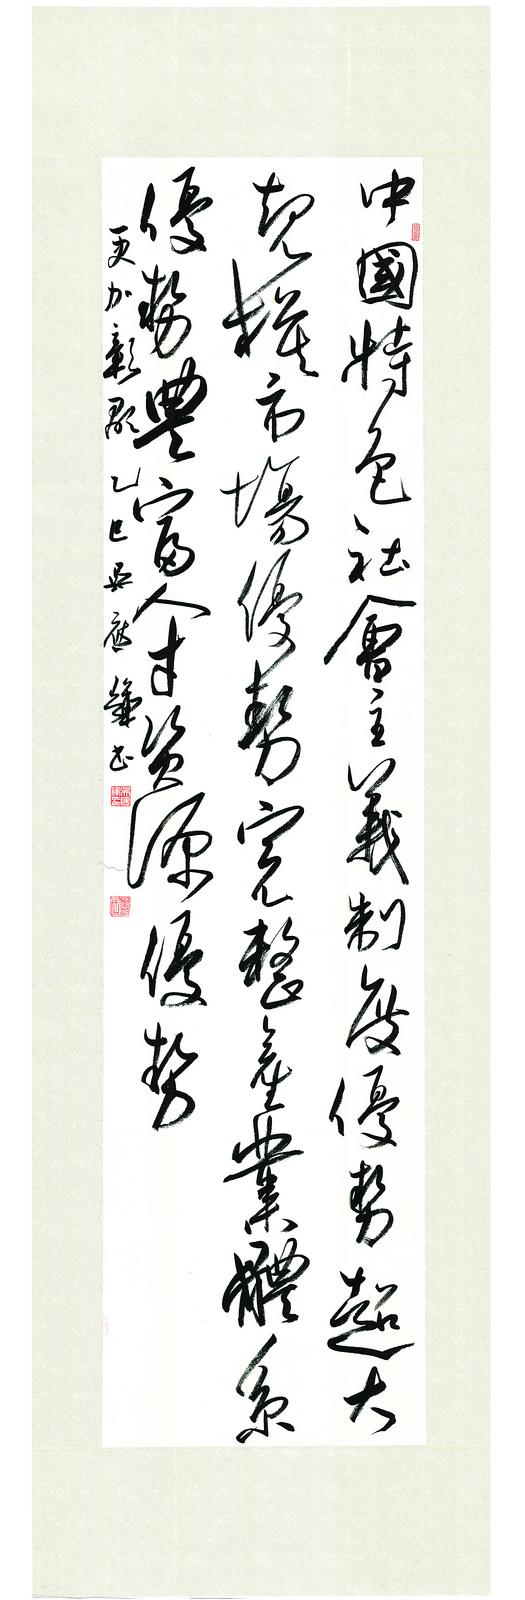 中國特色社會主義制度優勢超大
規模市場優勢完整產業體系
優勢豐富人才資源優勢
更加彰顯 乙巳吳應